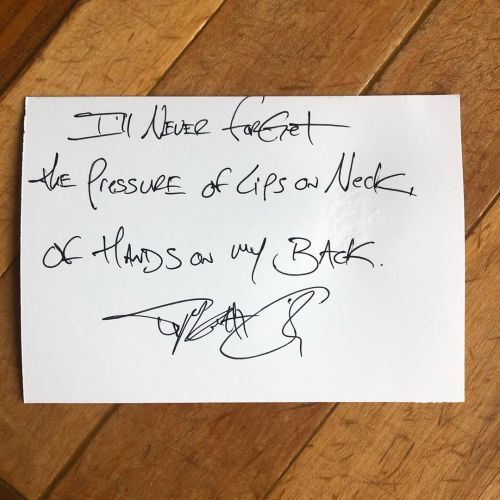 I'll Never forget
the Pressure of Lips on Neck,
of Hands on my Back.